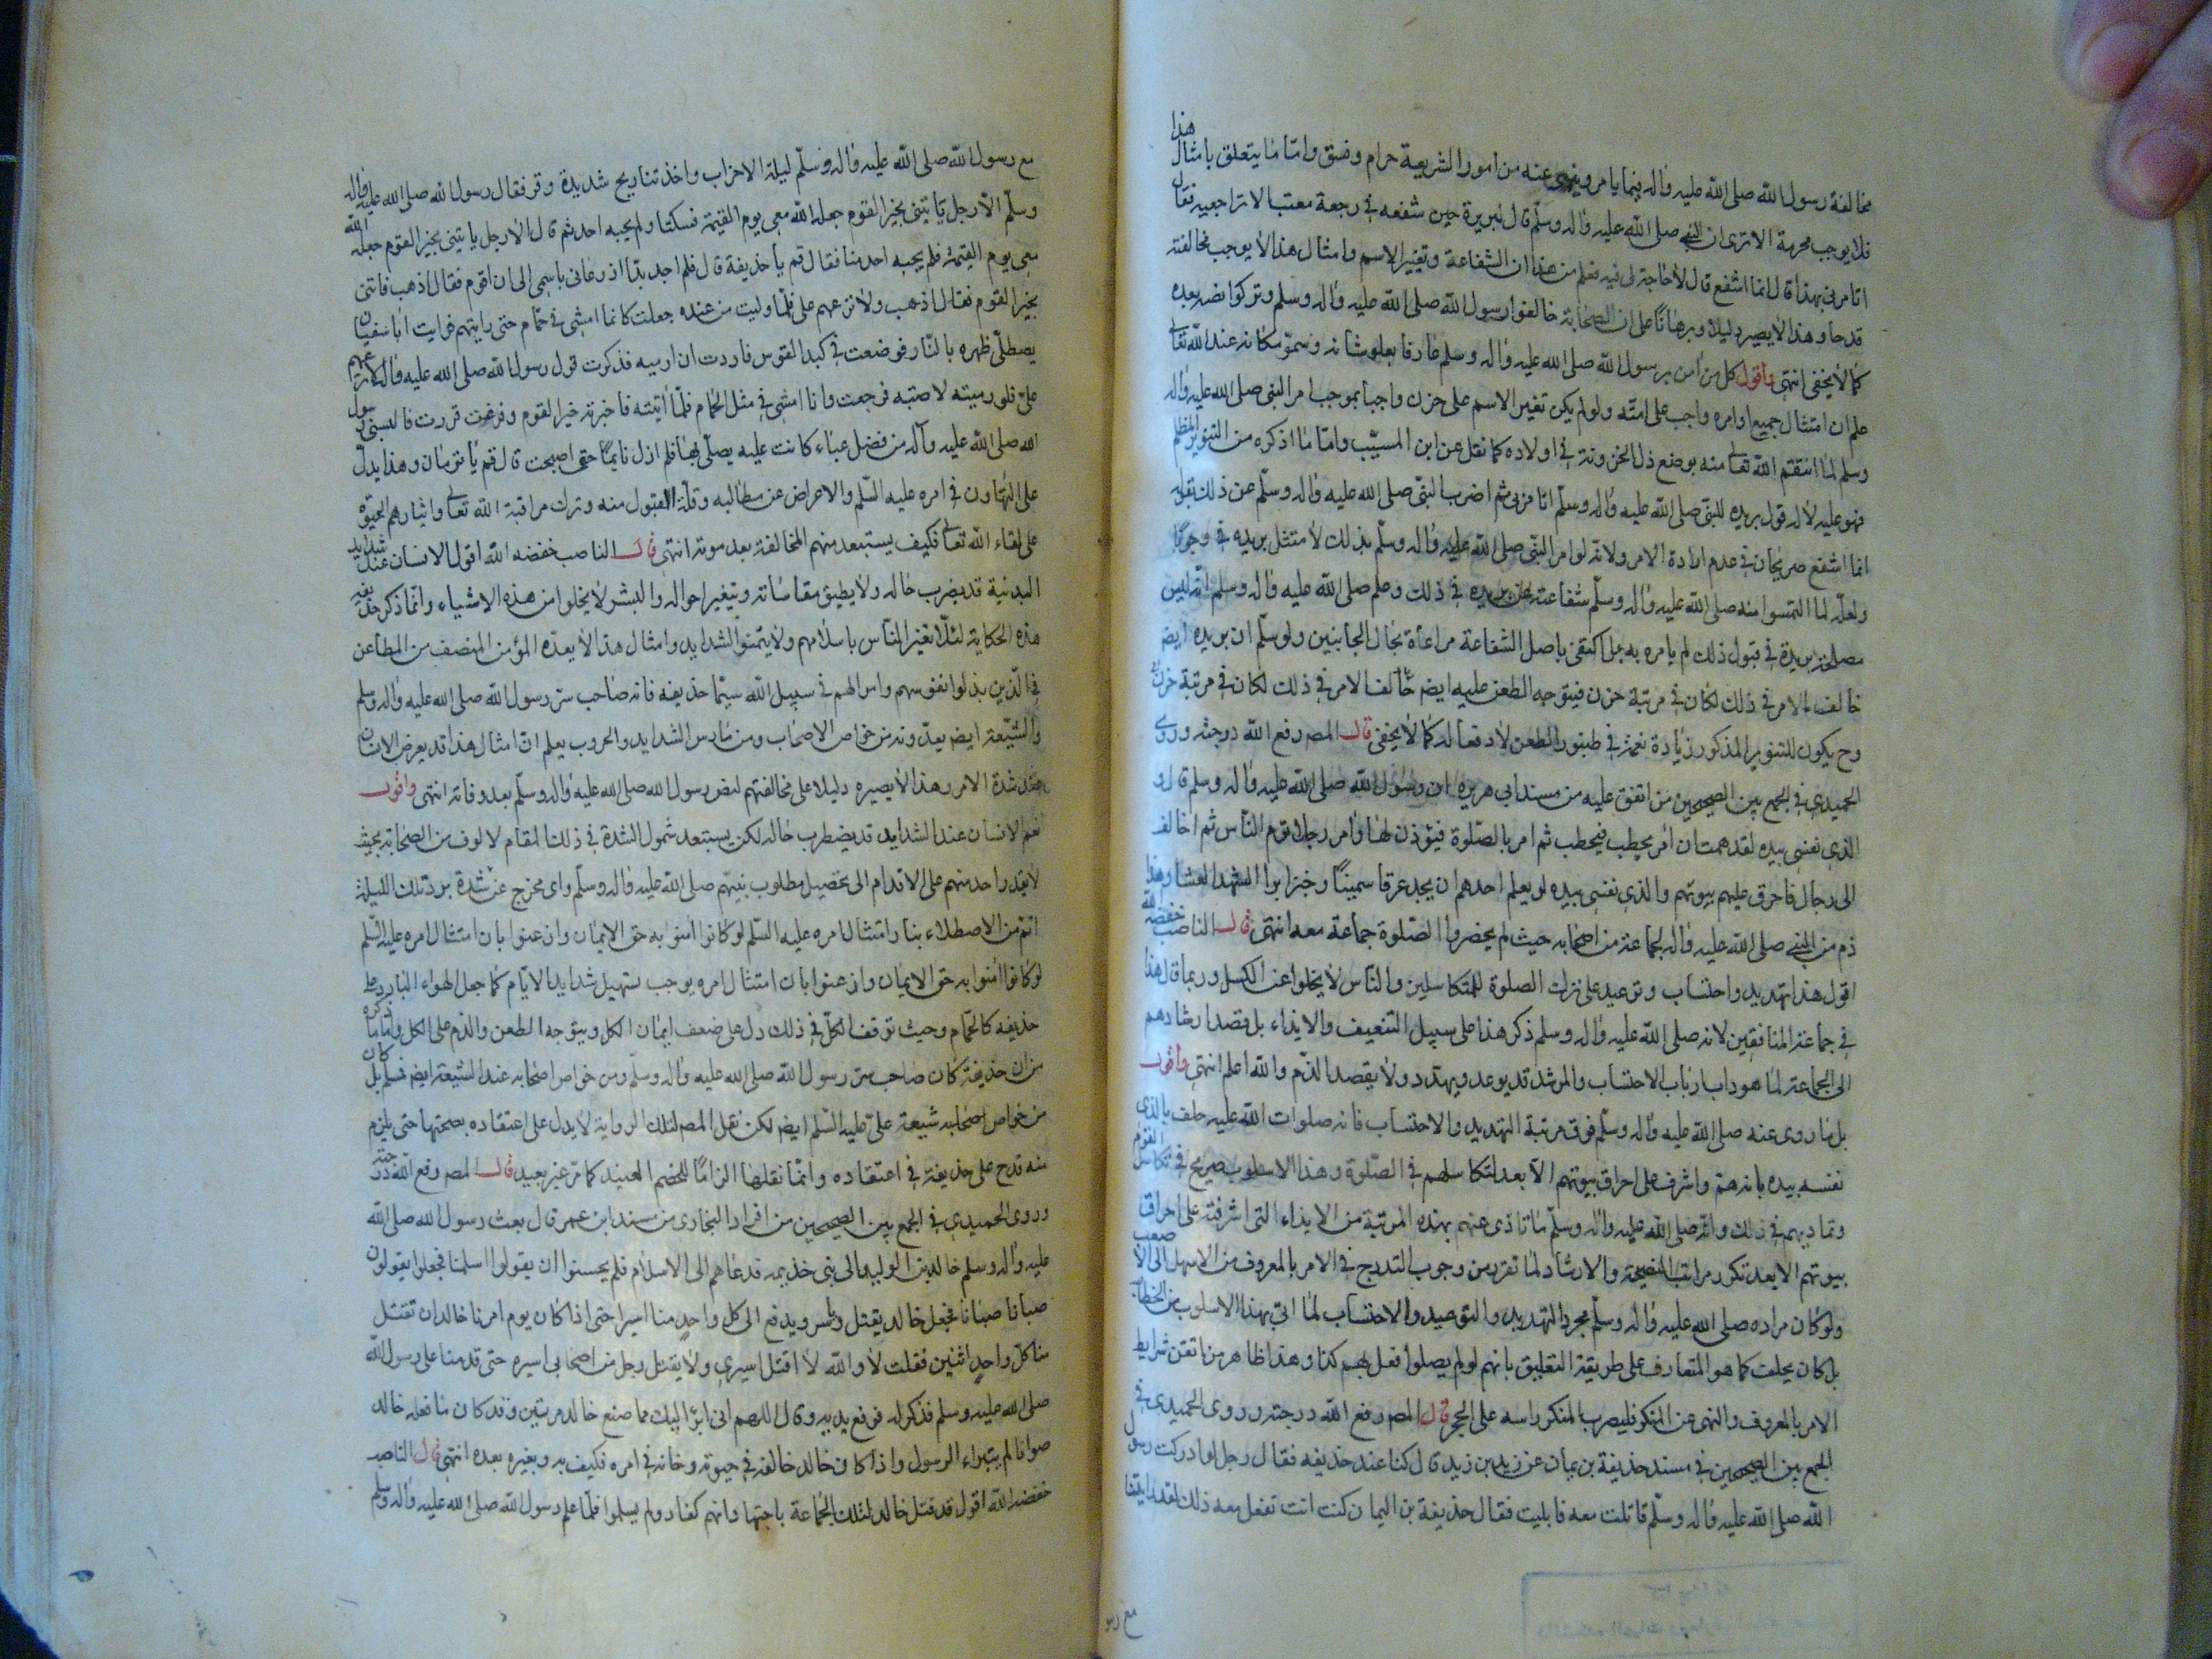 مخالفة رسول الله صلى الله عليه وآله فيما يامر وينهى عنه من امور الشريعة حرام وفسق واما ما يتعلق بامثال هذا
فلا يوجب محرمة الا ترى ان النبي صلى الله عليه وآله وسلّم قال لبريرة حين شفعه في رجعة معتبا لا تراجعيه فقال
اتامرني بهذا قال انما اشفع قال لا حاجة لي فيه فعلم من هذا ان الشفاعة وتغيير الاسم وامثال هذا لا يوجب مخالفته
قدحا وهذا لا يصير دليلا وبرهانا على ان الصحابة خالفوا رسول الله صلى الله عليه وآله وسلم وتركوا نصه بعده
كما لا يخفى انتهى واقول كل من آمن برسول الله صلى الله عليه وآله وسلم عارفا بعلو شانه وسموّ مكانه عند الله تعالى
علم ان امتثال جميع اوامره واجب على امته ولو لم يكن تغيير الاسم على حزن واجبا بموجب امر النبي صلى الله عليه وآله
وسلم لما انتقم الله تعالى منه بوضع ذل الحزونة في اولاده كما نقل عن ابن المسيّب واما ما اذكره من التنوير المظلم
فهو عليه لا له قول بريره للنبي صلى الله عليه وآله وسلّم اتامرني ثم اضرب النبي صلى الله عليه وآله وسلّم عن ذلك بقوله
انما اشفع صريحان في عدم ارادة الامر ولانه لو امر النبي صلى الله عليه وآله وسلّم بذلك لامتثل بريره في وجوبا
ولعله لما التمسوا منه صلى الله عليه وآله وسلّم شفاعته عن بريره في ذلك وعلم صلى الله عليه وآله وسلم انه ليس
مصلحة بريرة في قبول ذلك لم يامره به بل اكتفى باصل الشفاعة مراعاة بحال الجانبين ولو سلّم ان بريره ايضا
خالف الامر في ذلك لكان في مرتبة حزن فيتوجه الطعن عليه ايضا خالف الامر في ذلك لكان في مرتبة حزن
وح يكون للتنوير المذكور زيادة نغمة في طنبور الطعن لا دفعا له كما لا يخفى قال المصـ رفع الله درجته وروى
الحميدي في الجمع بين الصحيحين من اتفق عليه من مسند ابي هريره ان رسول الله صلى الله عليه وآله وسلم قال و
الذي نفسي بيده لقد هممت ان آمر بحطب فيحطب ثم امر بالصّلوة فيؤذن لها وآمر رجلا يؤم الناس ثم اخالف
الى رجال فاحرق عليهم بيوتهم والذي نفسي بيده لو يعلم احدهم ان يجد عرقا سمينًا وخيرا بوا الشهد العشاء وهذا
ذم من النبي صلى الله عليه وآله لجماعة من اصحابه حيث لم يحضروا الصّلوة جماعة معه انتهى قال الناصب خفضه الله
اقول هذا تهديد واحتساب وتوعيد على ترك الصلوة للمتكاسلين والناس لا يخلوا عن الكسل وربما قال هذا
في جماعة المنافقين لانه صلى الله عليه وآله وسلم ذكر هذا على سبيل التضعيف والايذاء بل قصد ارشادهم
الى الجماعة لما هو داب ارباب الاحتساب والمرشد قد يوعد ويهدد ولا يقصد الذّم والله اعلم انتهى واقول
بل ما روى عنه صلى الله عليه وآله وسلّم فوق مرتبة التهديد والاحتساب فانه صلوات الله عليه حلف بالذي
نفسه بيده بانه همّ واشرف على احراق بيوتهم الا بعد لتكاسلهم في الصّلوة وهذا الاسلوب صريح في تكاسل القوم
وتماديهم في ذلك وانه صلى الله عليه وآله وسلّم ما تاذى عنهم بهذه المرتبة من الايذاء التي اشرفته على احراق
بيوتهم الا بعد تكرر مراتب النصيحة والارشاد لما تقرر من وجوب التدرج في الامر بالمعروف من الاسهل الى الاصعب
ولو كان مراده صلى الله عليه وآله وسلّم مجرد التهديد والتوعيد والاحتساب لما اتى بهذا الاسلوب من الخطاب
بل كان يحلف كما هو المتعارف على طريقة التعليق بانهم لو لم يصلوا فعل بهم كذا وهذا ظاهر من اتقن شرايط
الامر بالمعروف والنهى عن المنكر فليضرب المنكر راسه على الحجر قال المصـ رفع الله درجته وروى الحميدي في
الجمع بين الصحيحين في مسند حذيفة بن يمان عن زيد بن زيد قال كنا عند حذيفه فقال رجل لو ادركت رسول
الله صلى الله عليه وآله وسلّم قاتلت معه فابليت فقال حذيفة بن اليمان كنت انت تفعل معه ذلك لقد رايتنا
مع رسو
مع رسول الله صلى الله عليه وآله وسلّم ليلة الاحزاب واخذتنا ريح شديدة وقر فقال رسول الله صلى الله عليه وآله
وسلّم الا رجل ياتيني بخبر القوم جعله الله معي يوم القيمة فسكتنا ولم يجبه احد ثم قال الا رجل ياتيني بخبر القوم جعله الله
معي يوم القيمة فلم يجبه احد منا فقال قم يا حذيفة قال فلم اجد بدّا اذ دعاني باسمي الا ان اقوم فقال اذهب فاتني
بخبر القوم فقال اذهب ولا تذعرهم على فلمّا وليت من عنده جعلت كانما امشي في حمّام حتى رايتهم فرايت ابا سفيان
يصطلي ظهره بالنّار فوضعت في كبد القوس فاردت ان ارميه فذكرت قول رسول الله صلى الله عليه وآله لا تذعرهم
عليّ فلو رميته لاصبته فرجعت وانا امشي في مثل الحمام فلمّا أتيته فاخبرته خبر القوم وفرغت قررت فالبسني رسول
الله صلى الله عليه وآله من فضل عباء كانت عليه يصلّي بها فلم ازل نائمًا حتى اصبحت قال قم يا نومان وهذا يدلّ
على التهاون في امره عليه السّلم والاعراض عن مطالبه وقلّة القبول منه وترك مراقبة الله تعالى وايثارهم الحيوة
على لقاء الله تعالى فكيف يستبعد منهم المخالفة بعد موته انتهى قال الناصب خفضه الله اقول الانسان عند شدايد
البدنية قد يضرب حاله ولا يطيق مقاساته ويتغير احواله والبشر لا يخلوا من هذه الاشياء وانما ذكر حذيفه
هذه الحكاية لئلّا تغير النّاس باسلامهم ولا يتمنوا الشدايد وامثال هذا لا يعدّه المؤمن المنصف من المطاعن
في الّذين بذلوا نفوسهم واموالهم في سبيل الله سيّما حذيفه فانه صاحب سرّ رسول الله صلى الله عليه وآله وسلم
والشّيعة ايضا يعدّونه من خواص الاصحاب ومن مارس الشدايد والحروب يعلم انّ امثال هذا قد يعرض الانسان
عند شدة الامر وهذا لا يصيره دليلا على مخالفتهم لنص رسول الله صلى الله عليه وآله وسلّم بعد وفاته انتهى واقول
نعم الانسان عند الشدايد قد يضطرب حاله لكن يستبعد شمول الشدة في ذلك المقام لالوف من الصحابة بحيث
لا يقدر احد منهم على الاقدام الى تحصيل مطلوب نبيّهم صلى الله عليه وآله وسلّم واي مخرج عن شدة برد تلك الليلة
اتم من الاصطلاء بنار امتثال امره عليه السّلم لو كانوا آمنو به حق الايمان واذعنوا بان امتثال امره عليه السّلم
لو كانوا آمنوا به حق الايمان واذعنوا بان امتثال امره يوجب تسهيل شدايد الايّام كما جعل الهواء البارد على
حذيفه كالحمّام وحيث توقف الكلّ في ذلك دل على ضعف ايمان الكل ويتوجه الطعن والذم على الكل واما ما ذكره
من ان حذيفة كان صاحب سرّ رسول الله صلى الله عليه وآله وسلّم ومن خواص اصحابه عند الشيعة ايضا فمسلم بل كان
من خواص اصحابه شيعة عليّ عليه السّلم ايضا لكن نقل المصـ لتلك الرواية لا يدل على اعتقاده بصحتها حتى يلزم
منه قدح على حذيفة في اعتقاده وانّما نقلها الزامًا للخصم العنيد كما مرّ غير بعيد قال المصـ رفع الله درجته
وروى الحميدي في الجمع بين الصحيحين من افراد البخاري من مسند ابن عمر قال بعث رسول الله صلى الله
عليه وآله وسلم خالد بن الوليد الى بني خذيمه فدعاهم الى الاسلام فلم يحسنوا ان يقولوا اسلمنا فجعلوا يقولون
صبانا صبانا فجعل خالد يقتل وياسر ويدفع الى كل واحد منا اسيرا حتى اذا كان يوم امرنا خالد ان تقتل
منا كلّ واحد اثنين فقلت لا والله لا اقتل اسيري ولا يقتل رجل من اصحابي اسيره حتى قدمنا على رسول الله
صلى الله عليه وسلم فذكر له فرفع يديه وقال اللهم اني ابرأ اليك مما صنع خالد مرتين وقد كان ما فعله خالد
صوابا لم يتبراء الرسول واذا كان خالد خالفه في حيوته وخانه في امره فكيف به وبغيره بعده انتهى قال الناصب
خفضه الله اقول قد قتل خالد لتلك الجماعة باجتهاد انهم كفار ولم يسلموا فلمّا علم رسول الله صلى الله عليه وآله وسلم